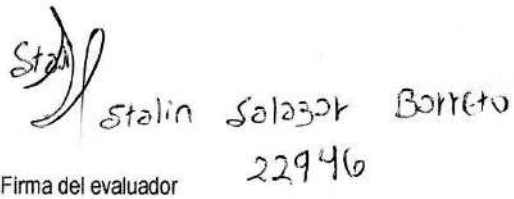 Stali
Stalin Salazar Barreto
22946
Firma del evaluador